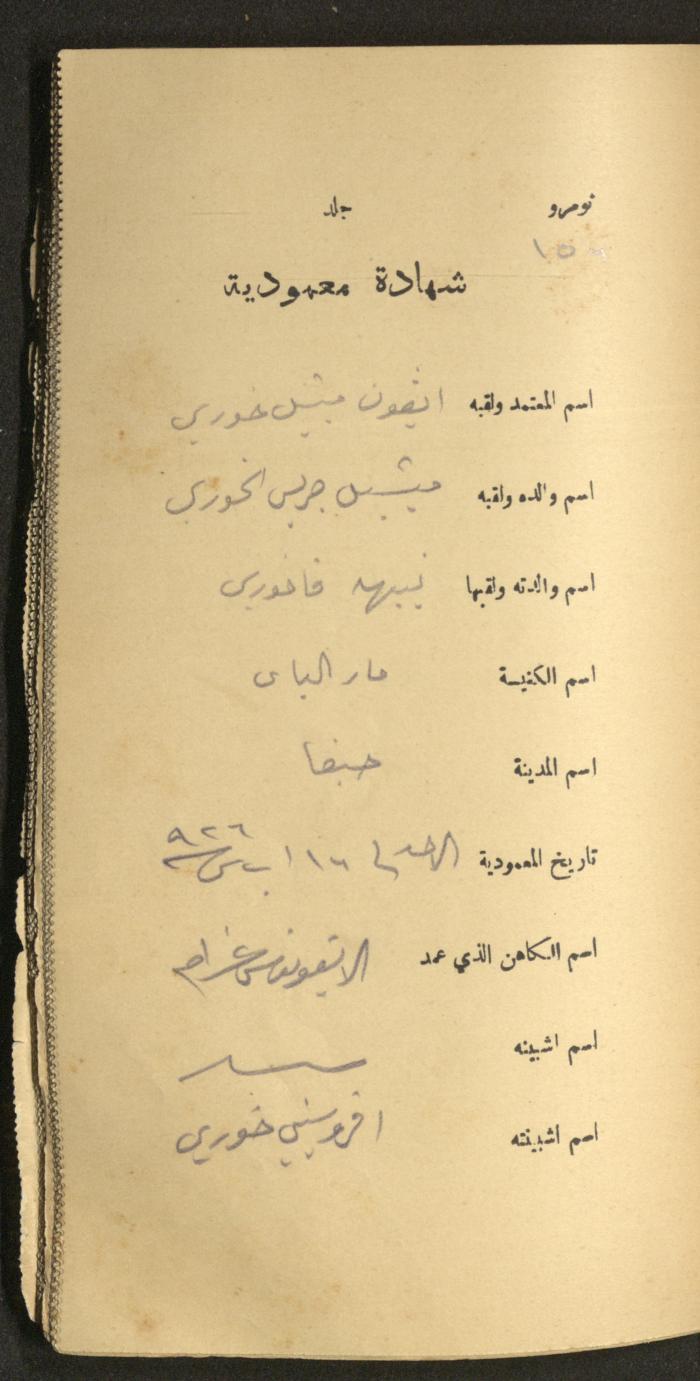 نومرو جلد
١٥٠
شهادة معمودية
اسم المعتمد ولقبه ايفون ميشيل خوري
اسم والده ولقبه ميشيل جريس الخوري
اسم والدته ولقبها نبيهه فاخوري
اسم الكنيسة مار الياس
اسم المدينة حيفا
تاريخ المعمودية الاحد في ١٦ اب سنة ٩٢٦
اسم الكاهن الذي عمد
اسم اشبينه
اسم اشبينته افروسيني خوري